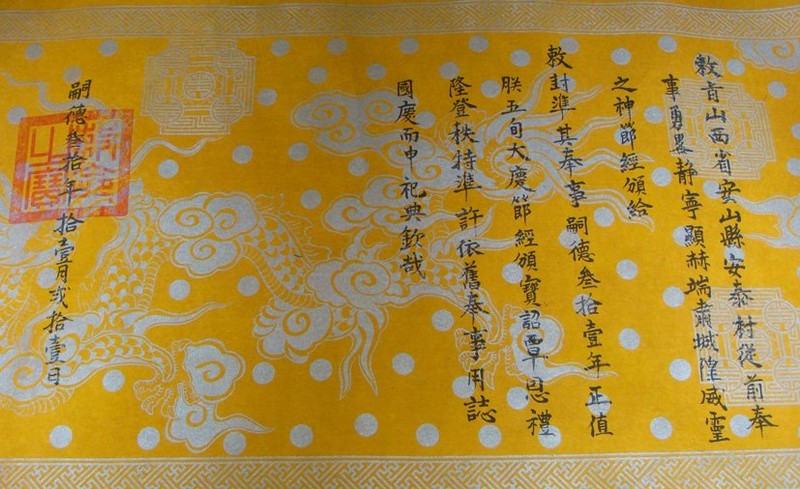 敕旨山西省安山縣安泰村從前奉
事勇畧静寧顯赫端肅城隍威靈
之神節經頒給
敕封準其奉事嗣德叁拾壹年正值
朕五旬大慶節經頒寶詔覃恩禮
隆登秩特準許依舊奉事用誌
國慶而申祀典欽哉
嗣德叁拾年拾壹月弍拾壹日